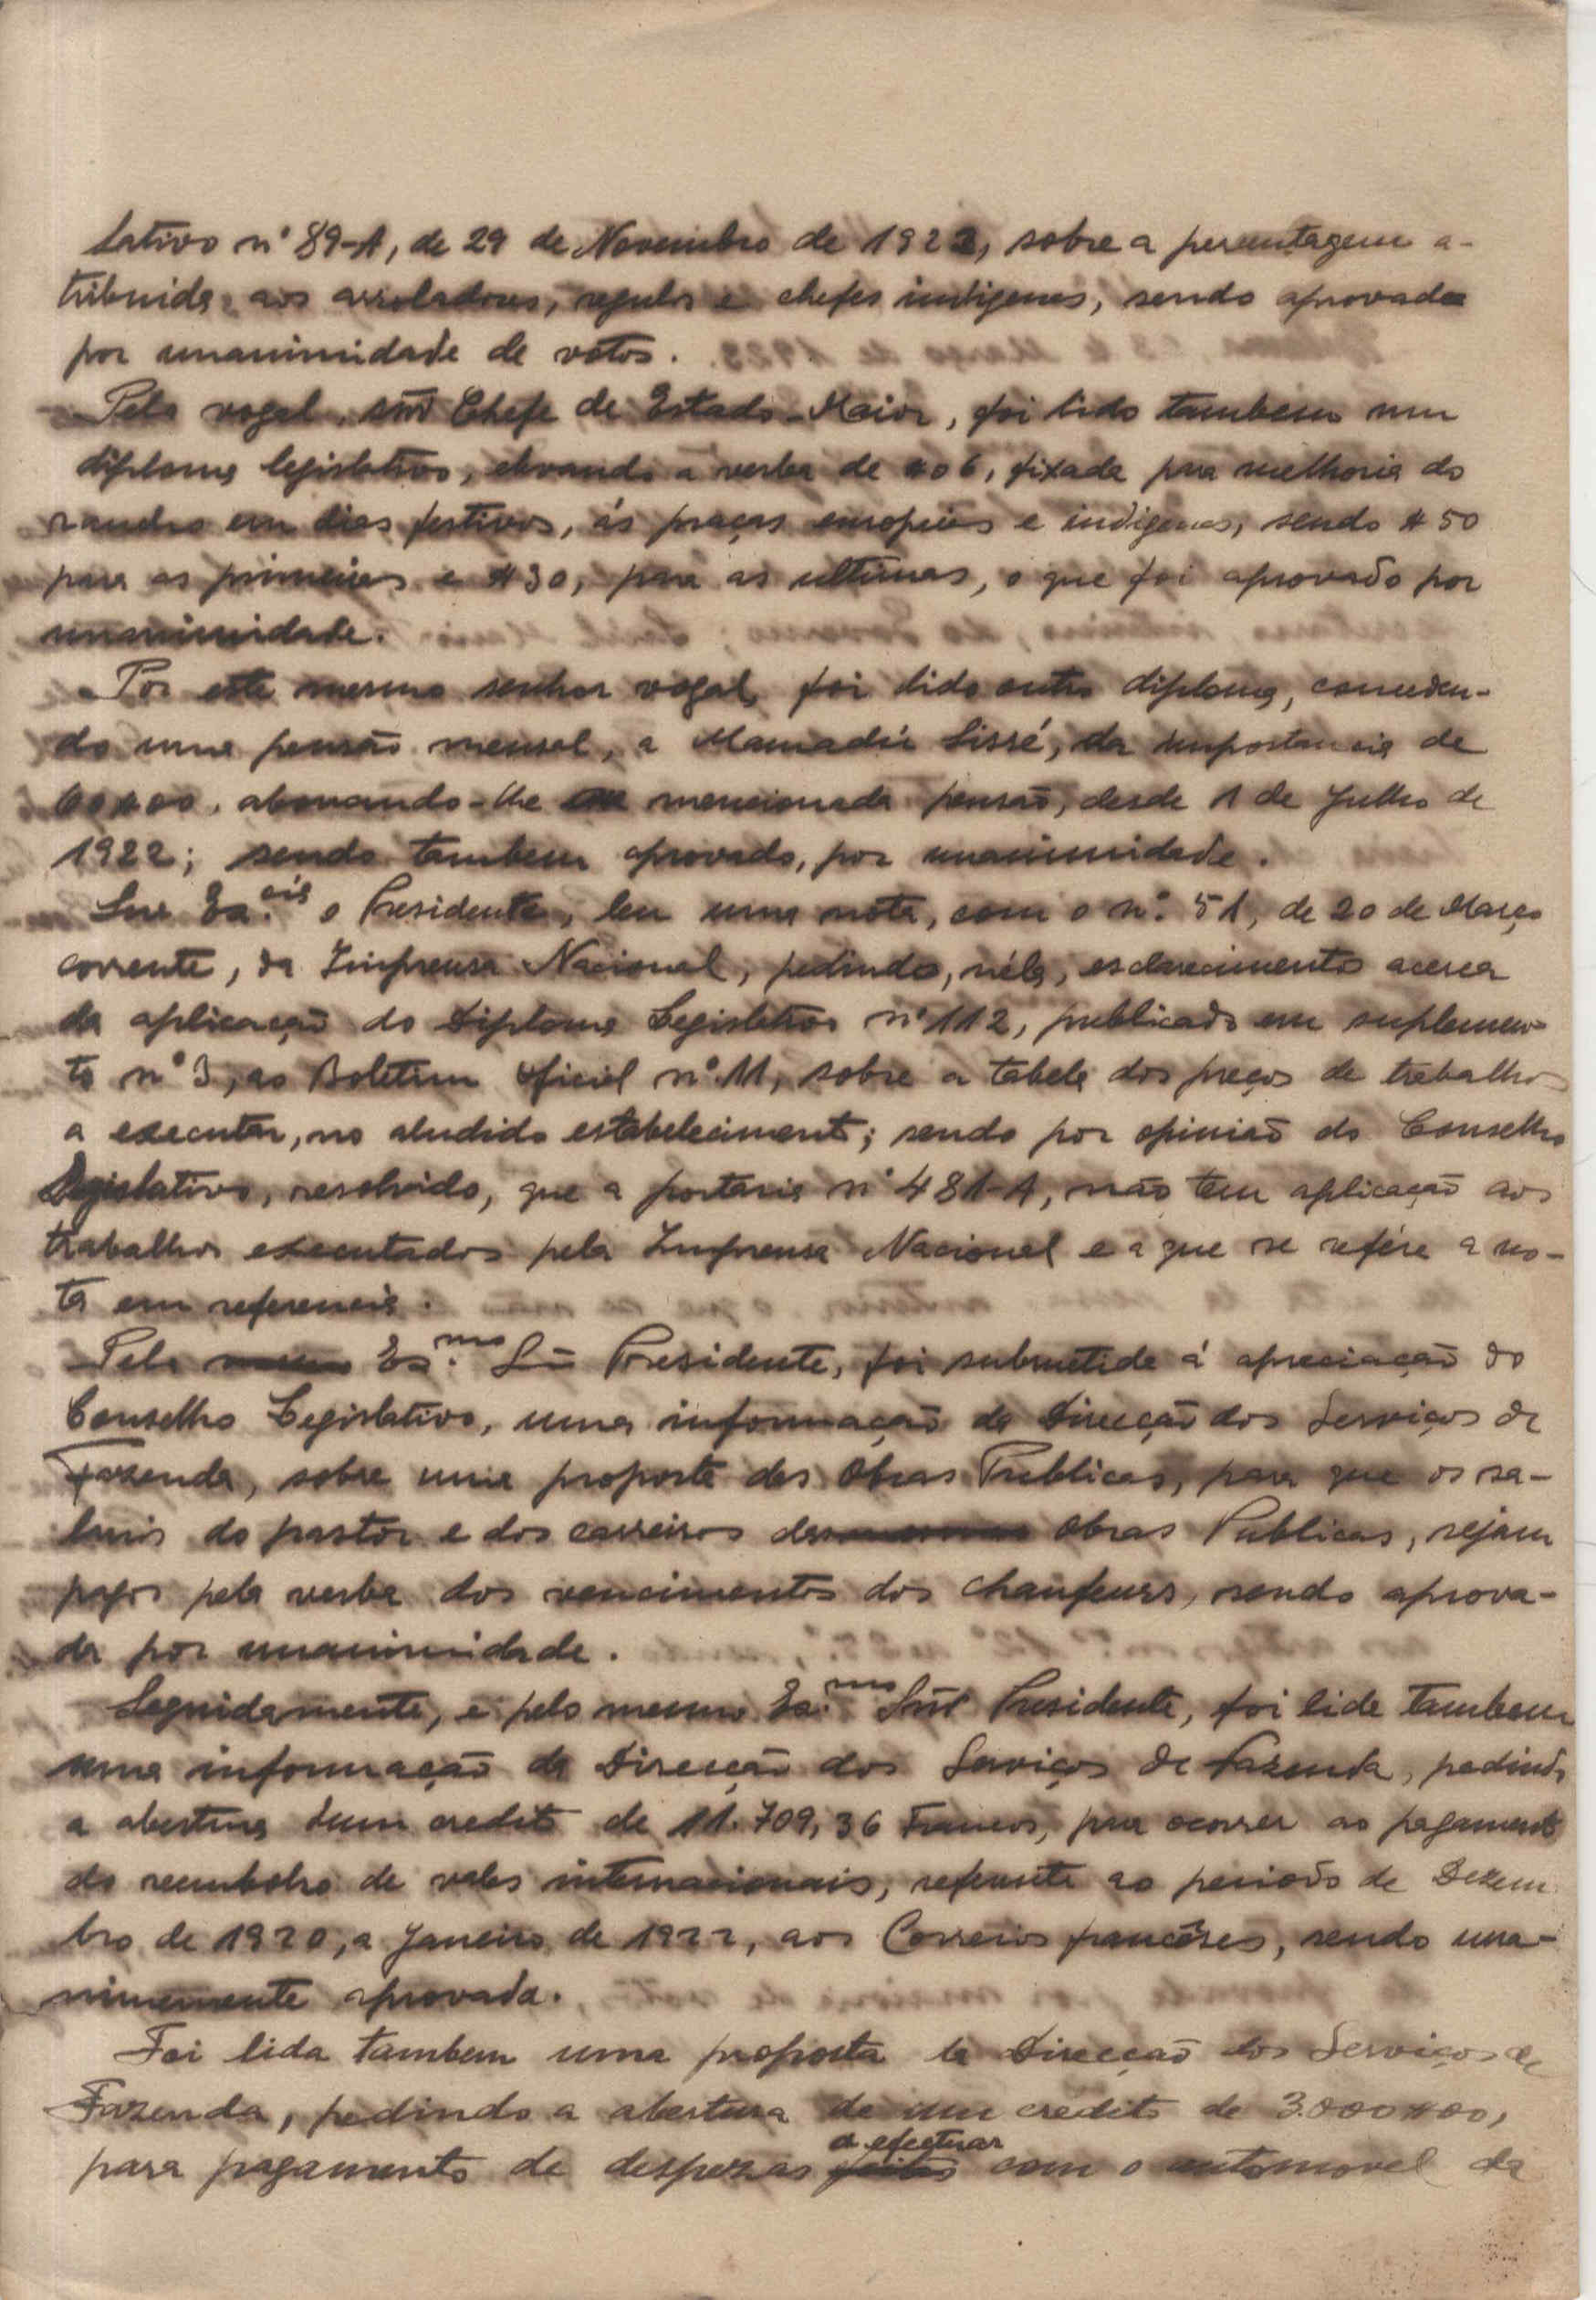 lativo nº 89-A, de 29 de Novembro de 1922, sobre a percentagem a-
tribuida aos arroladores, regulos e chefes indigenas, sendo aprovada
por unanimidade de votos.
Pelo vogal, snr Chefe de Estado-Maior, foi lido tambem um
diploma legislativo, elevando a verba de $06, fixada para melhoria do
rancho em dias festivos, ás praças europeias e indigenas, sendo $50
para as primeiras e $30, para as ultimas, o que foi aprovado por
unanimidade.
Por este mesmo senhor vogal, foi lido outro diploma, conceden-
do uma pensão mensal, a Mamadú Sissé, da importancia de
60$00, abonando-lhe mencionada pensão, desde 1 de Julho de
1922; sendo tambem aprovado, por unanimidade.
Sua Exª.cia o Presidente, leu uma nota, com o nº. 51, de 20 de Março
corrente, da Imprensa Nacional, pedindo, néla, esclarecimentos acerca
da aplicação do Diploma Legislativo nº 112, publicado em suplemen-
to nº 3, ao Boletim Oficial nº 11, sobre a tabela dos preços de trabalhos
a executar, no aludido estabelecimento; sendo por opinião do Conselho
Legislativo, resolvido, que a portaria nº 481-A, não tem aplicação aos
trabalhos executados pela Imprensa Nacional e a que se refére a no-
ta em referencia.
Pelo Ex.mo Snr Presidente, foi submetida á apreciação do
Conselho Legislativo, uma informação da Direcção dos Serviços de
Fazenda, sobre uma proposta das Obras Publicas, para que os sa-
larios do pastor e dos carreiros das Obras Publicas, sejam
pagos pela verba dos vencimentos dos chaufeurs, sendo aprova-
da por unanimidade.
Seguidamente, e pelo mesmo Ex.mo Snr Presidente, foi lida tambem
uma informação da Direcção dos Serviços de Fazenda, pedindo
a abertura dum credito de 11.709,36 Francos, para ocorrer ao pagamento
do reembolso de vales internacionais, referente ao periodo de Dezem
bro de 1920, a Janeiro de 1922, aos Correios francêses, sendo una-
nimemente aprovada.
Foi lida tambem uma proposta da Direcção dos Serviços de
Fazenda, pedindo a abertura de um credito de 3.000$00,
para pagamento de despezas a efectuar com o automovel da